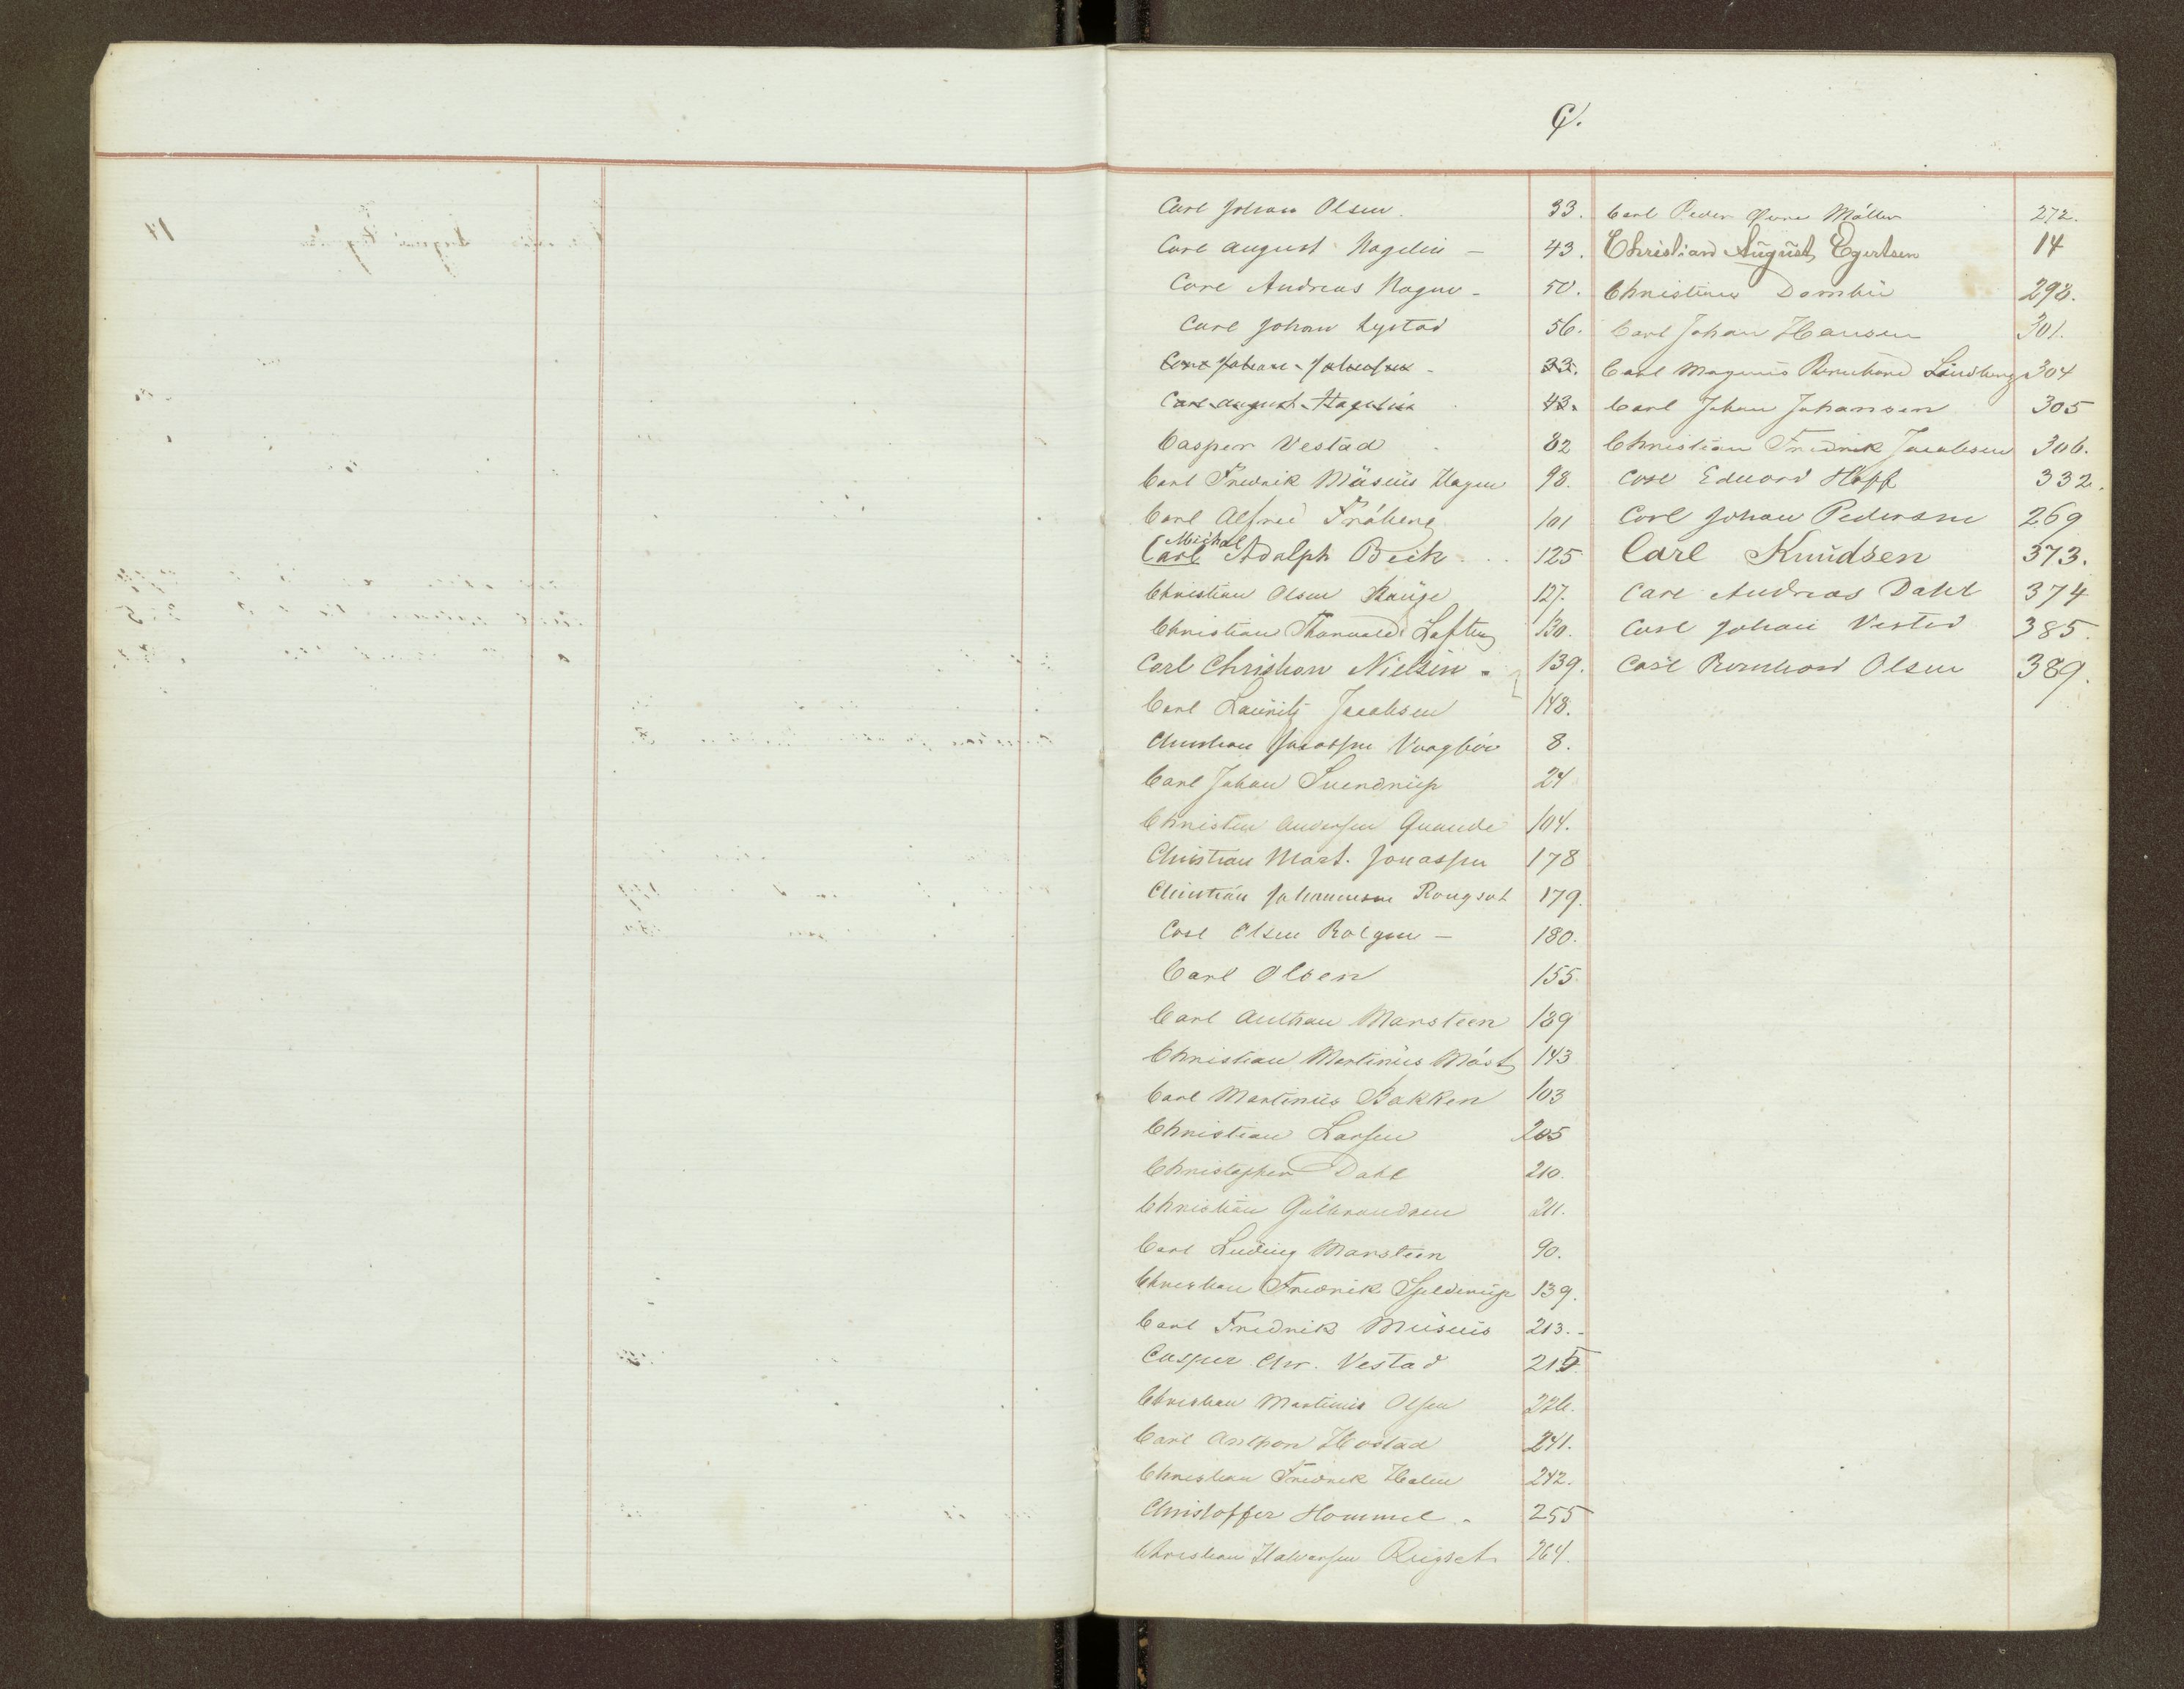 C.
Carl Johan Olsen. 33.
Carl August Hagelin - 43.
Carl Andreas Hagen - 50.
Carl Johan Lystad 56.
Carl Johan Johansen - 33.
Carl August Hagelin 43.
Casper Vestad 82
Carl Fredrik Müsüis Hagen 98.
Carl Alfred Fröberg 101
Michal
Carl Adolph Beck 125
Christian Olsen Hauge 127.
Christian Thorvald Lofthus 130.
Carl Christian Nielsen 139.
Carl Lauritz Jacobsen 148.
Christian Jacobsen 8.
Carl Johan Svendrup 24
Christian Andersen 104.
Christian Mart. Jonassen 178
Christian Johannesen 179.
Carl Olsen - 180.
Carl Olsen 155
Carl Marsteen 189
Christian Martinus 143
Carl Martinus Bakken 103
Christian Larsen 205
Christopher Dahl 210.
Christian Gulbrandsen 211.
Carl Ludvig Marsteen 90.
Christian Fredrik Spelderup 139.
Carl Fredrik Müsüis 213.
Casper Chr. Vestad 215
Christian Martinus Olsen 226.
Carl Hostad 241.
Christian Fredrik Holm 242.
Christoffer Hommel 255
Christian Halvorsen Rugset 264.
Carl Peder Möller 272.
Christian August Egertsen 14
Christian Dombü 298.
Carl Johan Hansen 301.
Carl Magnus Bernhard Lindberg 304
Carl Johan Johansen 305
Christian Fredrik Jacobsen 306.
Carl Eduard Hopf 332.
Carl Johan Pedersen 269
Carl Knudsen 373.
Carl Andreas Dahl 374
Carl Johan Vestad 385.
Carl Bernhard Olsen 389.